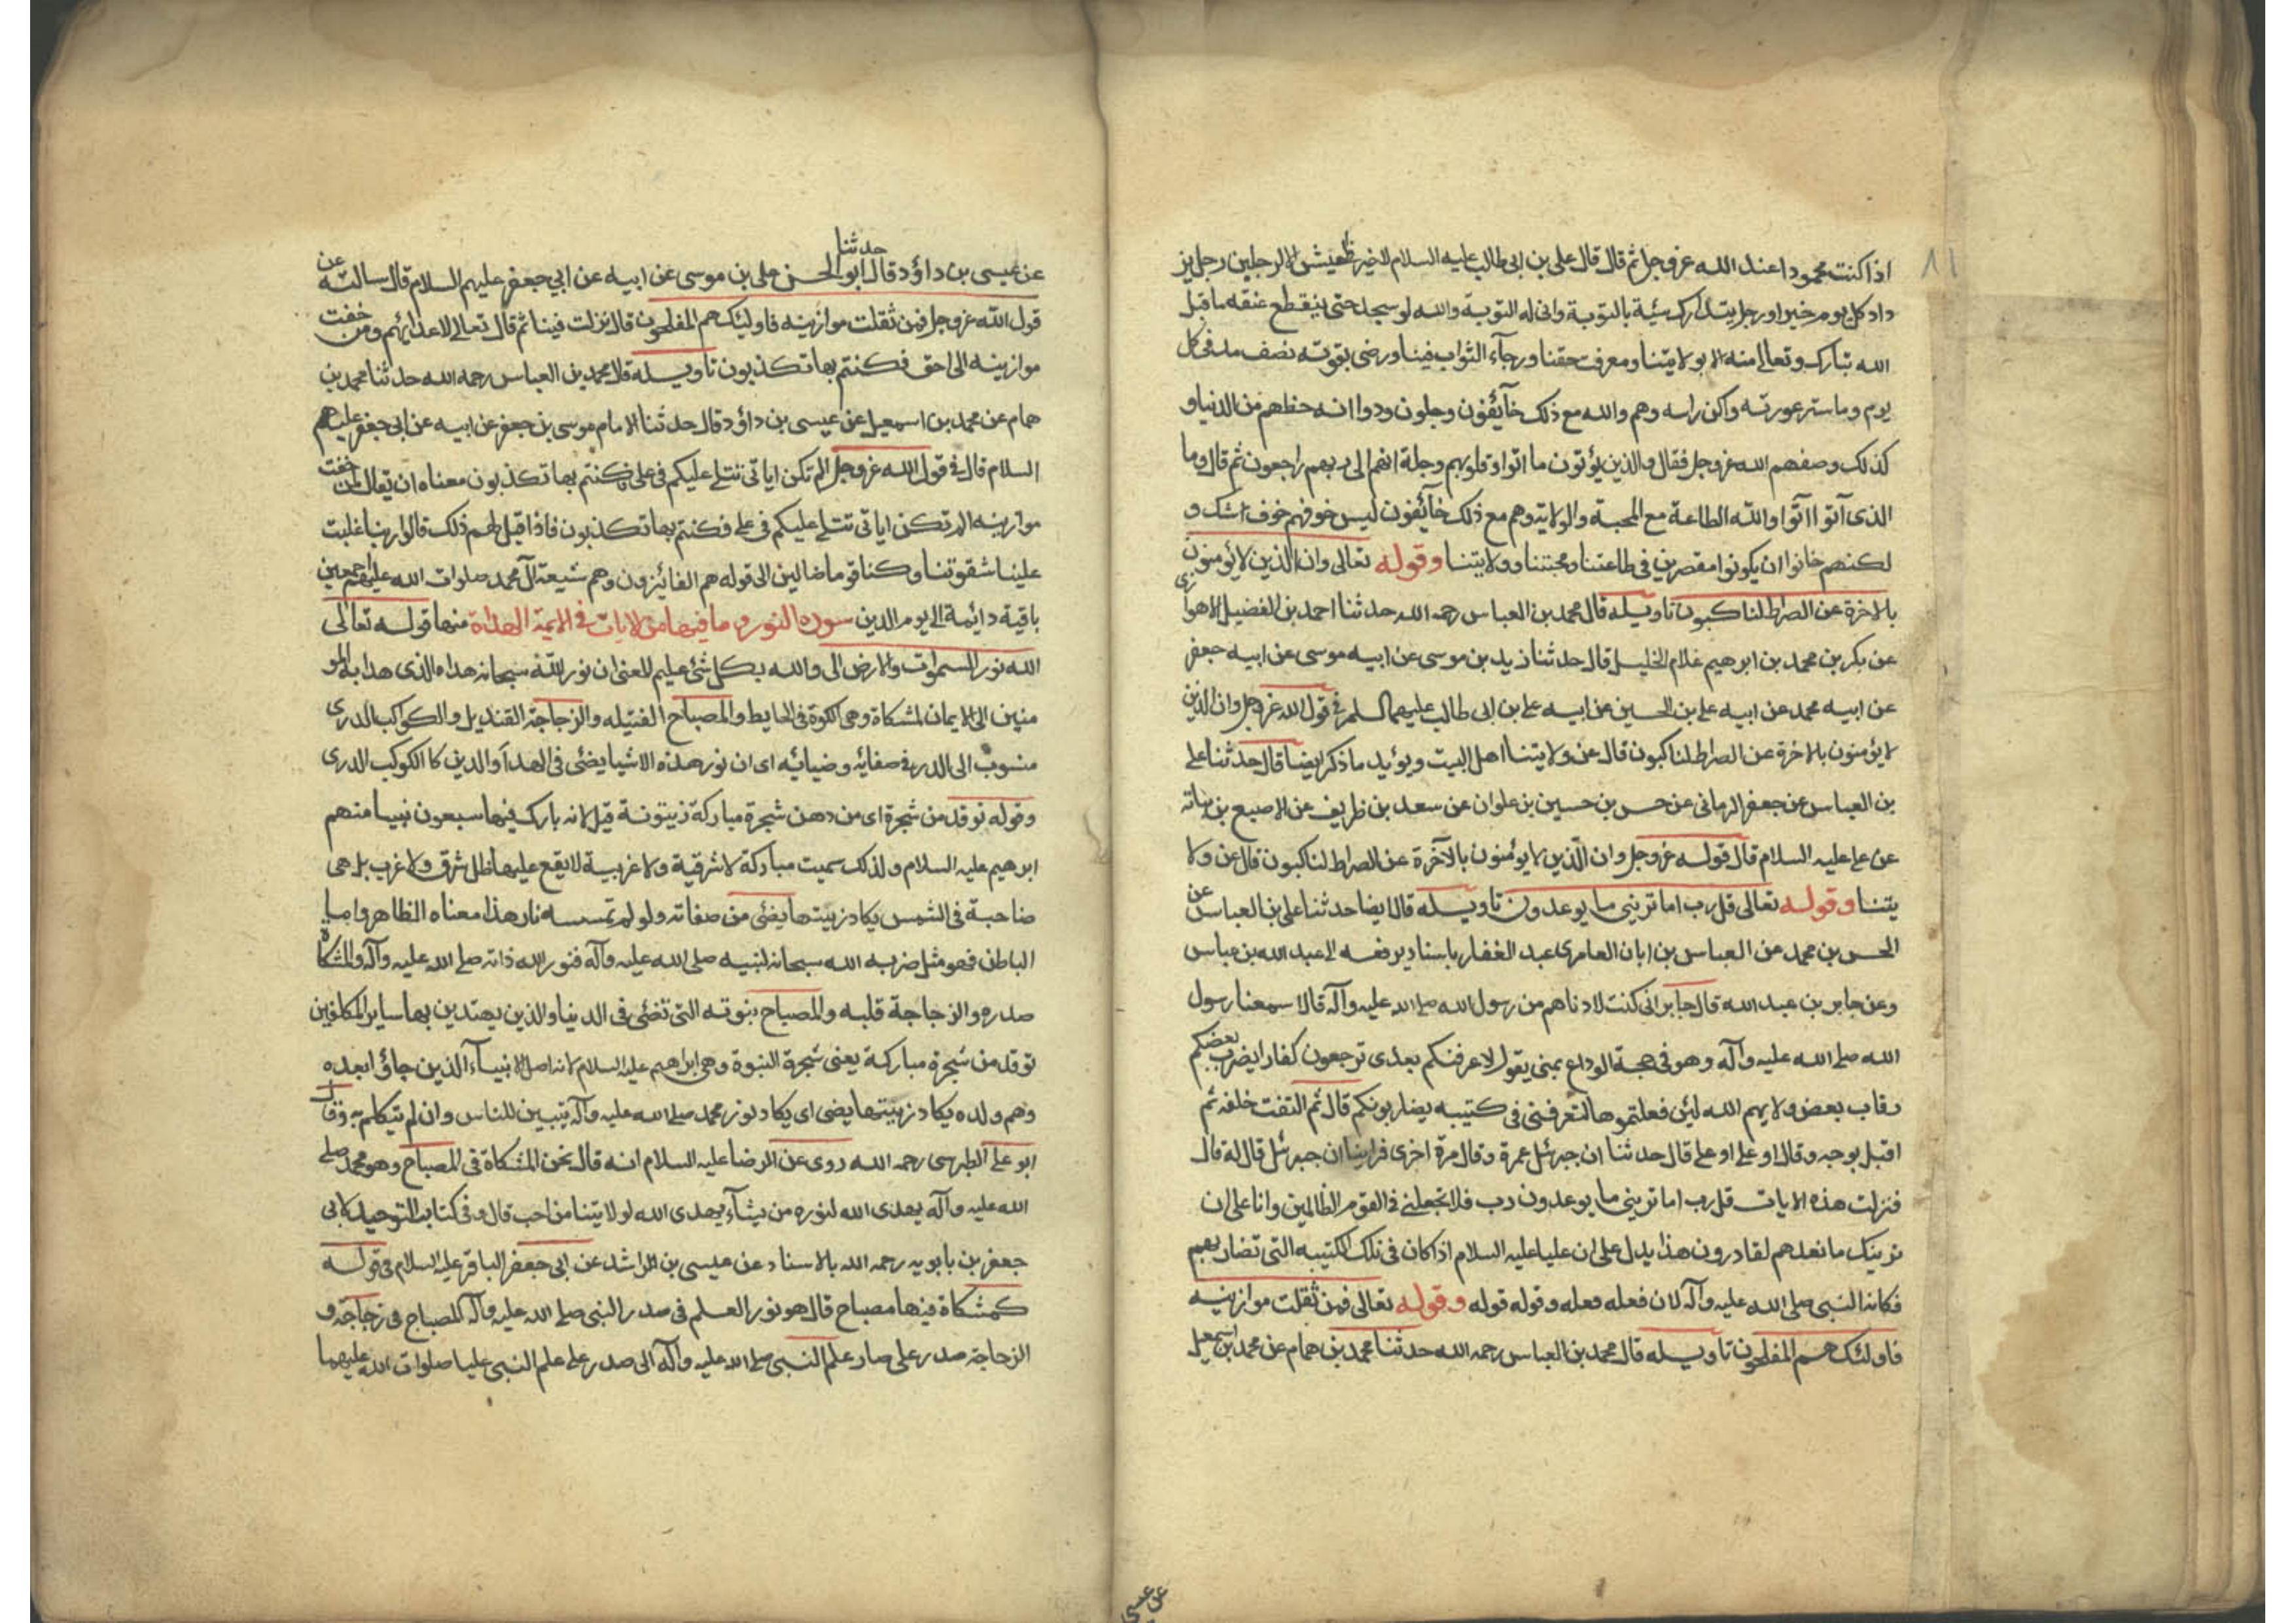 ٨١
اذا كنت محمودا عند الله عز وجل ثم قال قال علی بن ابی طالب علیه السلام لا خیر فی عیش الا لرجلین رجل یز
داد كل یوم خیرا ورجل یتدارك سیئة بالتوبة وانی له التوبة والله لو سجد حتی ینقطع عنقه ما قبل
الله تبارك وتعالی منه الا بولایتنا ومعرفت حقنا ورجآء الثواب فینا ورضی بقوته نصف مد فی كل
یوم وما ستر عورته واكن راسه وهم والله مع ذلك خآئفون وجلون ودوا انه حظهم من الدنیا و
كذلك وصفهم الله عز وجل فقال والذین یؤتون ما اتوا وقلوبهم وجلة انهم الی ربهم راجعون ثم قال وما
الذی آتوا اتوا والله الطاعة مع المحبة والولایة وهم مع ذلك خآئفون لیس خوفهم خوف شك و
لكنهم خافوا ان یكونوا مقصرین فی طاعتنا ومحبتنا وولایتنا وقوله تعالی وان الذین لا یؤمنون
بالاخرة عن الصراط لناكبون تاویله قال محمد بن العباس رحمه الله حدثنا احمد بن الفضیل الاهوازی
عن بكر بن محمد بن ابرهیم غلام الخلیل قال حدثنا زید بن موسی عن ابیه موسی عن ابیه جعفر
عن ابیه محمد عن ابیه علی بن الحسین عن ابیه علی بن ابی طالب علیهم السلم فی قول الله عز وجل وان الذین
لا یؤمنون بالاخرة عن الصراط لناكبون قال عن ولایتنا اهل البیت ویؤید ما ذكر ایضا قال حدثنا علی
بن العباس عن جعفر الرمانی عن حسن بن حسین بن علوان عن سعد بن ظریف عن الاصبغ بن نباته
عن علی علیه السلام قال قوله عز وجل وان الذین لا یؤمنون بالآخرة عن الصراط لناكبون قال عن ولا
یتنا وقوله تعالی قل رب اما ترینی ما یوعدون تاویله قال ایضا حدثنا علی بن العباس عن
الحسن بن محمد من العباس بن ابان العامری عبد الغفار باسناد یرفعه الی عبد الله بن عباس
وعن جابر بن عبد الله قال جابر انی كنت لادناهم من رسول الله صلی الله علیه وآله قالا سمعنا رسول
الله صلی الله علیه وآله وهو فی حجة الوداع بمنی یقول لاعرفنكم بعدی ترجعون كفارا یضرب بعضكم
رقاب بعض ولایم الله لئن فعلتموها لتعرفنی فی كتیبه یضاربونكم قال ثم التفت خلفه ثم
اقبل بوجهه وقال او علی او علی قال حدثنا ان جبرئل غمرة وقال مرة اخری فراینا ان جبرئل قال له قال
فنزلت هذه الایات قل رب اما ترینی ما یوعدون رب فلا تجعلنی فی القوم الظالمین وانا علی ان
نرینك ما نعدهم لقادرون هذا یدل علی ان علیا علیه السلام اذا كان فی تلك الكتیبه التی تضاربهم
فكانه النبی صلی الله علیه وآله لان فعله فعله وقوله قوله وقوله تعالی فمن ثقلت موازینه
فاولئك هم المفلحون تاویله قال محمد بن العباس رحمه الله حدثنا محمد بن همام عن محمد بن اسمعیل
عن عیسی
عن عیسی بن داؤد قال حدثنا ابو الحسن علی بن موسی عن ابیه عن ابی جعفر علیهم السلام قال سالته عن
قول الله عز وجل فمن ثقلت موازینه فاولئك هم المفلحون قال نزلت فینا ثم قال تعالی لاعدائهم ومن خفت
موازینه الی حق فكنتم بها تكذبون تاویله قال محمد بن العباس رحمه الله حدثنا محمد بن
همام عن محمد بن اسمعیل عن عیسی بن داؤد قال حدثنا الامام موسی بن جعفر عن ابیه عن ابی جعفر علیهم
السلام قال فی قول الله عز وجل الم تكن ایاتی تتلی علیكم فی علی فكنتم بها تكذبون معناه ان تعالی لمن خفت
موازینه الم تكن ایاتی تتلی علیكم فی علی فكنتم بها تكذبون فاذا قیل لهم ذلك قالوا ربنا غلبت
علینا شقوتنا وكنا قوما ضالین الی قوله هم الفائزون وهم شیعة آل محمد صلوات الله علیهم اجمعین
باقیة دائمة الی یوم الدین سورة النور وما فیها من الایات فی الائمة الهداة منها قوله تعالی
الله نور السموات والارض الی والله بكل شئ علیم المعنی ان نور الله سبحانه هداه الذی هدا به المو
منین الی الایمان لمشكاة وهی الكوة فی الحایط والمصباح الفتیله والزجاجة القندیل والكواكب الدری
منسوب الی الدر فی صفائه وضیائه ای ان نور هذه الاشیا یضئی فی الهدآ والدین كا الكوكب الدری
وقوله توقد من شجرة ای من دهن شجرة مباركة زیتونة قیل لانه بارك فیها سبعون نبیا منهم
ابرهیم علیه السلام ولذلك سمیت مباركة لا شرقیة ولا غربیة لا یقع علیها ظل شرق ولا غرب بل هی
ضاحیة فی الشمس یكاد زیتها یضئی من صفاته ولو لم تمسسه نار هذا معناه الظاهر واما
الباطن فهو مثل ضربه الله سبحانه لنبیه صلی الله علیه وآله فنور الله ذاته صلی الله علیه وآله والمشكاة
صدره والزجاجة قلبه والمصباح نبوته التی تضئی فی الدنیا والدین یهتدین بها سایر المكلفین
توقد من شجرة مباركة یعنی شجرة النبوة وهی ابراهیم علیه السلام لانه اصل الانبیآء الذین جاؤا بعده
وهم ولده یكاد زیتها یضی ای یكاد نور محمد صلی الله علیه وآله یتبین للناس وان لم یتكلم به وقال
ابو علی الطبرسی رحمه الله روی عن الرضا علیه السلام انه قال نحن المشكاة فی المصباح وهو محمد صلی
الله علیه وآله یهدی الله لنوره من یشآء یهدی الله لولایتنا من احب قال وفی كتاب التوحید لابی
جعفر بن بابویه رحمه الله بالاسناد عن عیسی بن الراشد عن ابی جعفر الباقر علیه السلام فی قوله
كمشكاة فیها مصباح قال هو نور العلم فی صدر النبی صلی الله علیه وآله المصباح فی زجاجة و
الزجاجة صدر علی صار علم النبی صلی الله علیه وآله الی صدر علی علم النبی علیا صلوات الله علیهما